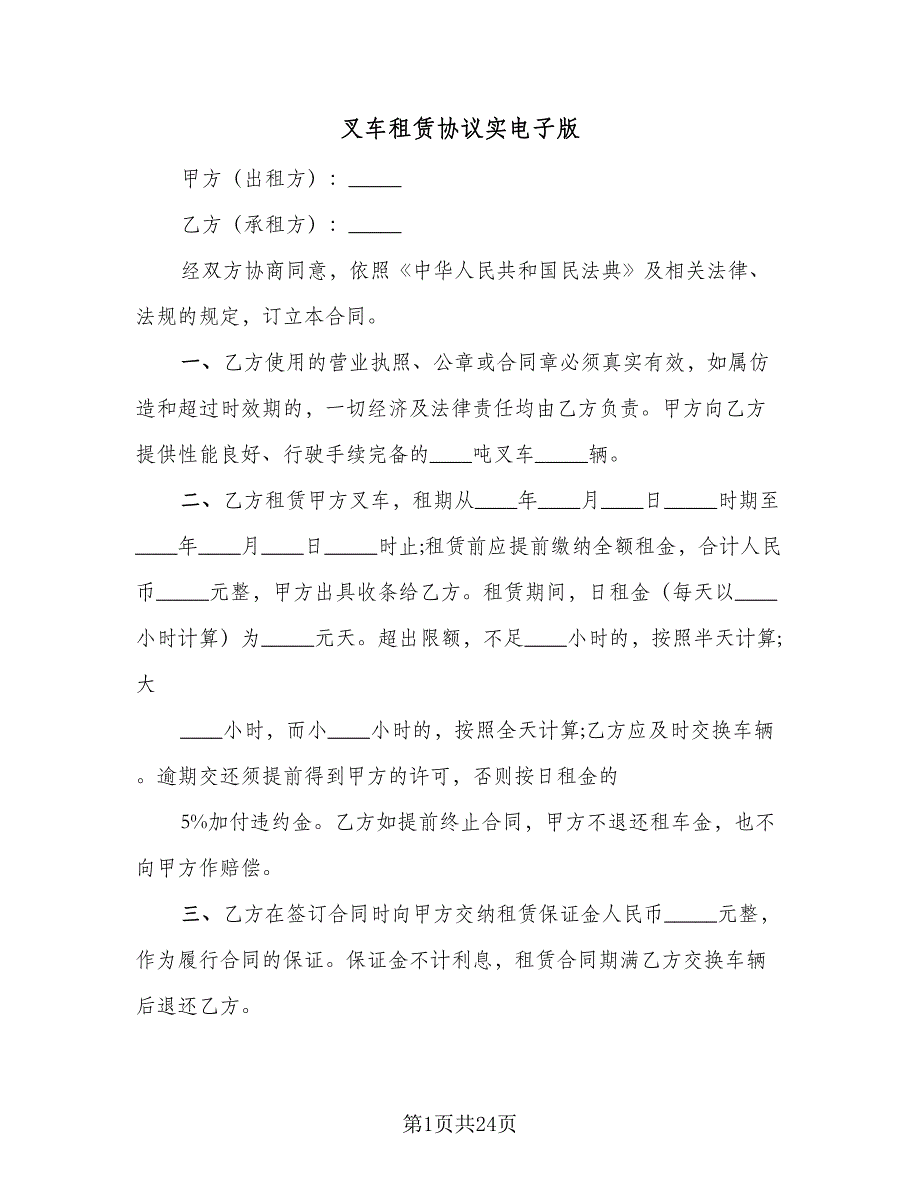 叉车租赁协议实电子版
甲方（出租方）：_____
乙方（承租方）：_____
经双方协商同意，依照《中华人民共和国民法典》及相关法律、
法规的规定，订立本合同。
一、乙方使用的营业执照、公章或合同章必须真实有效，如属仿
造和超过时效期的，一切经济及法律责任均由乙方负责。甲方向乙方
提供性能良好、行驶手续完备的____吨叉车_____辆。
二、乙方租赁甲方叉车，租期从____年____月____日_____时期至
____年____月____日_____时止;租赁前应提前缴纳全额租金，合计人民
币_____元整，甲方出具收条给乙方。租赁期间，日租金（每天以____
小时计算）为_____元天。超出限额，不足____小时的，按照半天计算;
大
____小时，而小____小时的，按照全天计算;乙方应及时交换车辆
。逾期交还须提前得到甲方的许可，否则按日租金的
5%加付违约金。乙方如提前终止合同，甲方不退还租车金，也不
向甲方作赔偿。
三、乙方在签订合同时向甲方交纳租赁保证金人民币_____元整，
作为履行合同的保证。保证金不计利息，租赁合同期满乙方交换车辆
后退还乙方。
第1页共24页